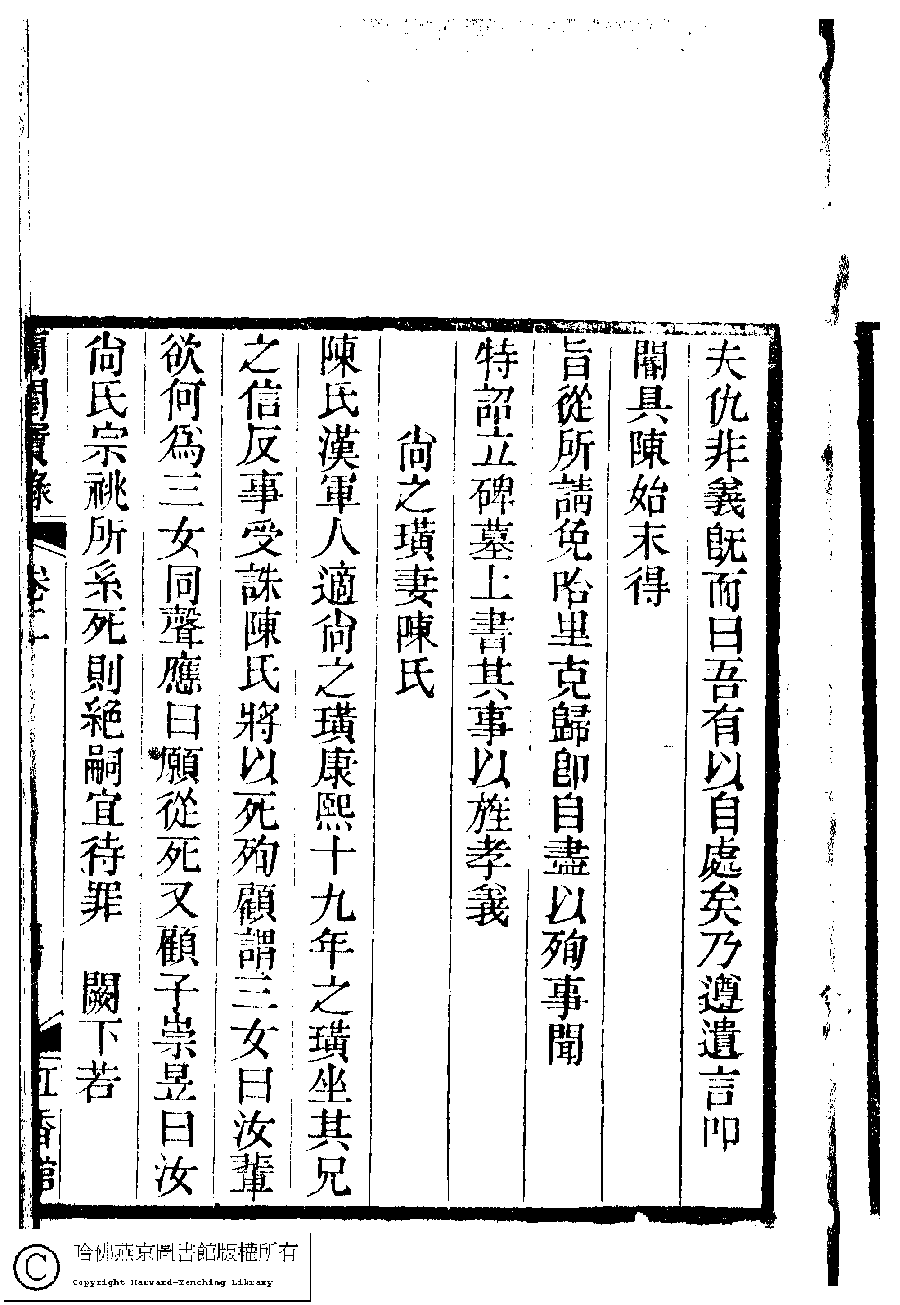 夫仇非義旣而曰吾有以自處矣乃遵遺言叩
閽具陳始末得
旨從所請免哈里克歸卽自盡以殉事聞
特詔立碑墓上書其事以旌孝義
尙之璜妻陳氏
陳氏漢軍人適尙之璜康熙十九年之璜坐其兄
之信反事受誅陳氏將以死殉顧謂三女曰汝輩
欲何爲三女同聲應曰願從死又顧子崇昱曰汝
尙氏宗祧所系死則絶嗣宜待罪 闕下若
閨實錄 卷二 紅香館
哈佛燕京圖書館版權所有
Copyright Harvard-Yenching Library